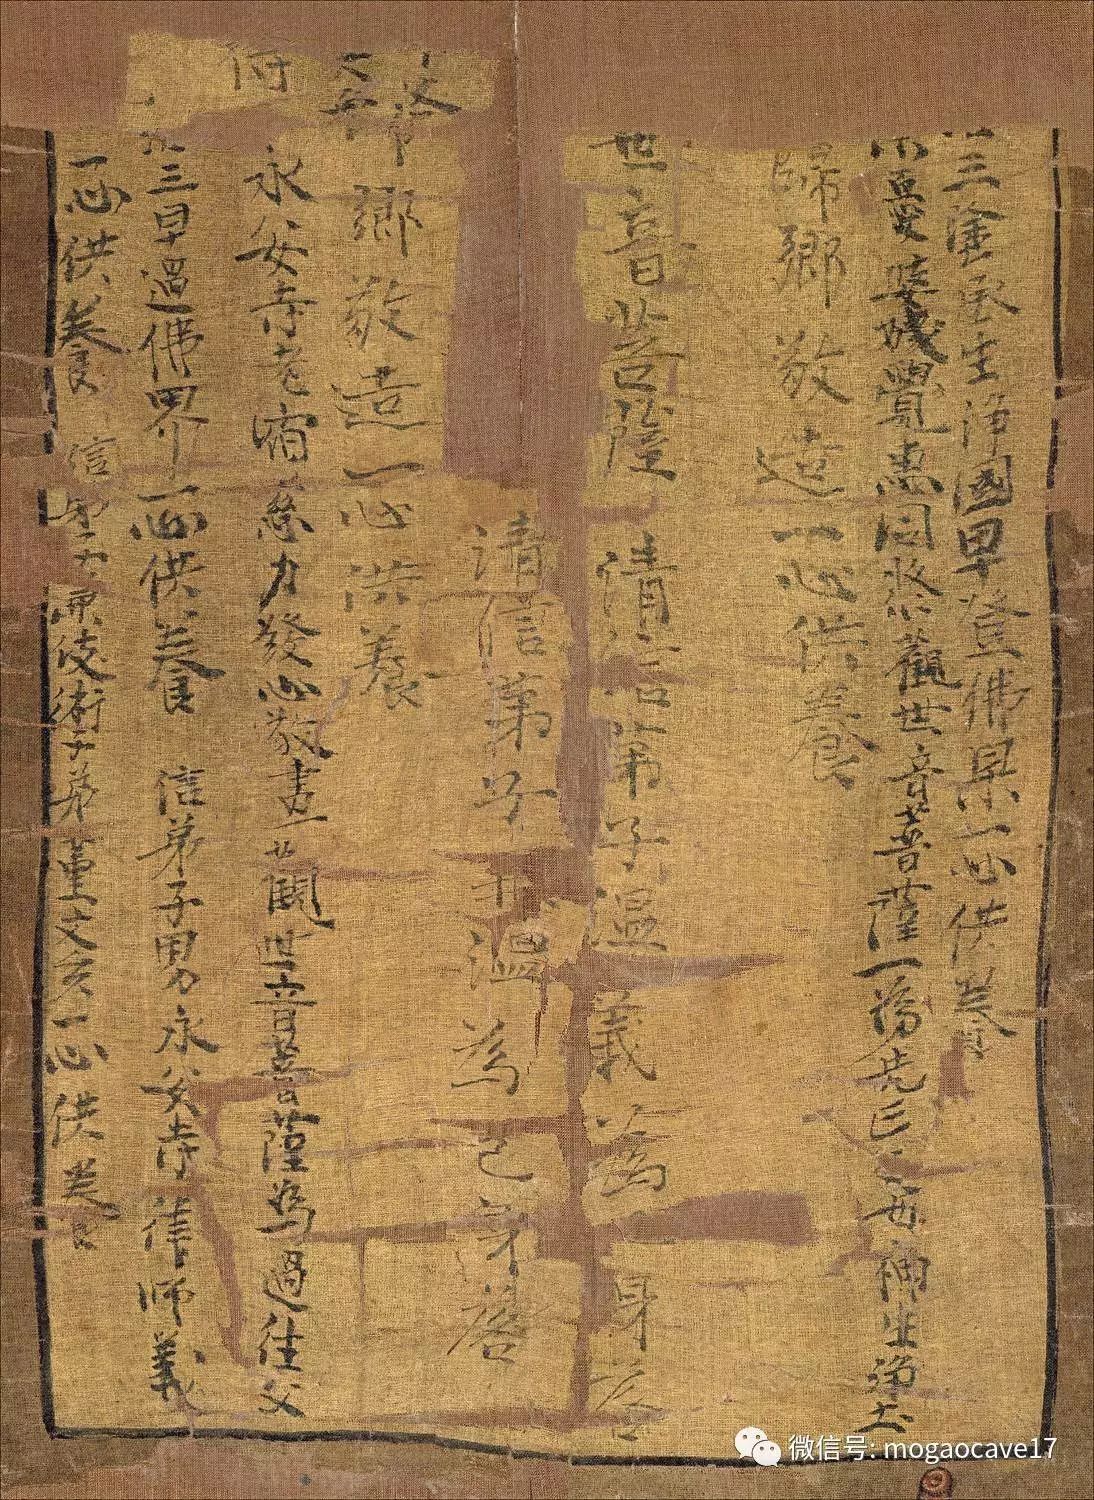 世音菩薩 清信弟子溫義為己身落
歸鄉敬造一心供養
憂婆姨覺惠同修觀世音菩薩一為先亡父母神生淨土
三塗永生淨國早登佛果一心供養
清信弟子溫為己身落
鄉敬造一心供養
永安寺老宿慈力發心敬畫觀世音菩薩為過往父
三早遇佛界一心供養 信弟子男永安寺律師義
一心供養 信弟子兼伎術子弟董文亥一心供養
微信号: mogaocave17